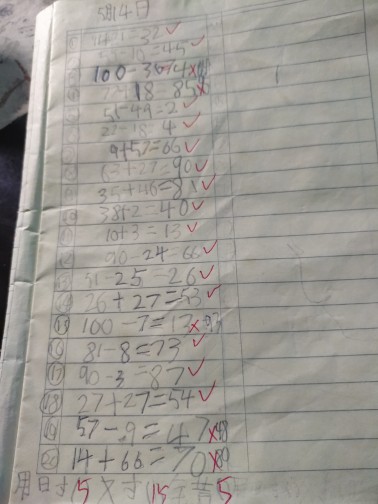 5月14日
=32✓
-10=45✓
③ 100-36=74×
18=85×
51-49=2✓
22-18=4✓
9+57=66✓
63+27=90✓
35+46=81✓
⑩ 38+2=40✓
⑪ 10+3=13✓
⑫ 90-24=66✓
⑬ 51-25=26✓
⑭ 26+27=53✓
⑮ 100-7=13×93
⑯ 81-8=73✓
⑰ 90-3=87✓
⑱ 27+27=54✓
⑲ 57-9=47×48
⑳ 14+66=70×80
15 × 15 5